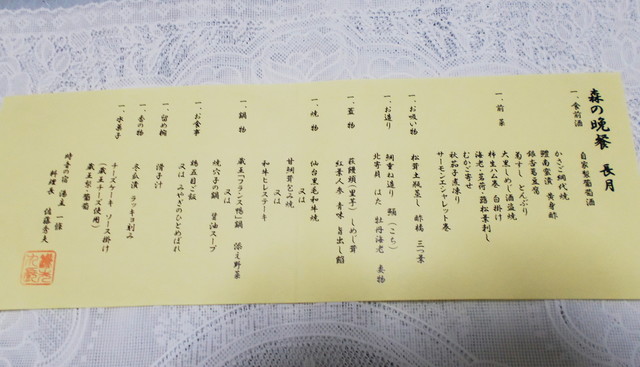 森の晩餐 長月
一、食前酒
自家製葡萄酒
一、前菜
かさご網代焼
鱧南蛮漬 黄身酢
銀杏葛豆腐
菊すし とんぶり
大黒しめじ酒盗焼
柿生ハム巻 白掛け
海老・茗荷・蕗松葉刺し
むかご寄せ
秋茄子煮凍り
サーモンエシャレット巻
一、お吸い物
松茸土瓶蒸し 酢橘 三つ葉
一、お造り
桐重ね造り 鯒(こち)
北寄貝 はた 牡丹海老 妻物
一、蓋物
萩饅頭(里芋) しめじ茸
紅葉人参 青味 旨出し餡
一、焼物
仙台黒毛和牛焼
又は
甘鯛茸包み焼
又は
和牛ヒレステーキ
一、鍋物
蔵王「フランス鴨」鍋 添え野菜
又は
焼穴子の鍋 醤油スープ
一、お食事
鶏五目ご飯
又は みやぎのひとめぼれ
一、留め椀
清子汁
一、香の物
冬瓜漬 ラッキョ刻み
一、水菓子
チーズケーキ ソース掛け
(蔵王チーズ使用)
蔵王梨・葡萄
時音の宿 湯主 一條
料理長 佐藤秀夫